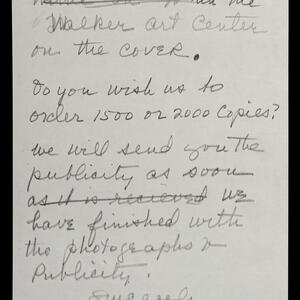 the
Walker art Center
on the cover.
Do you wish us to
order 1500 or 2000 copies?
We will send you the
publicity as soon
as it is recieved we
have finished with
the photographs &
Publicity.
Sincerely